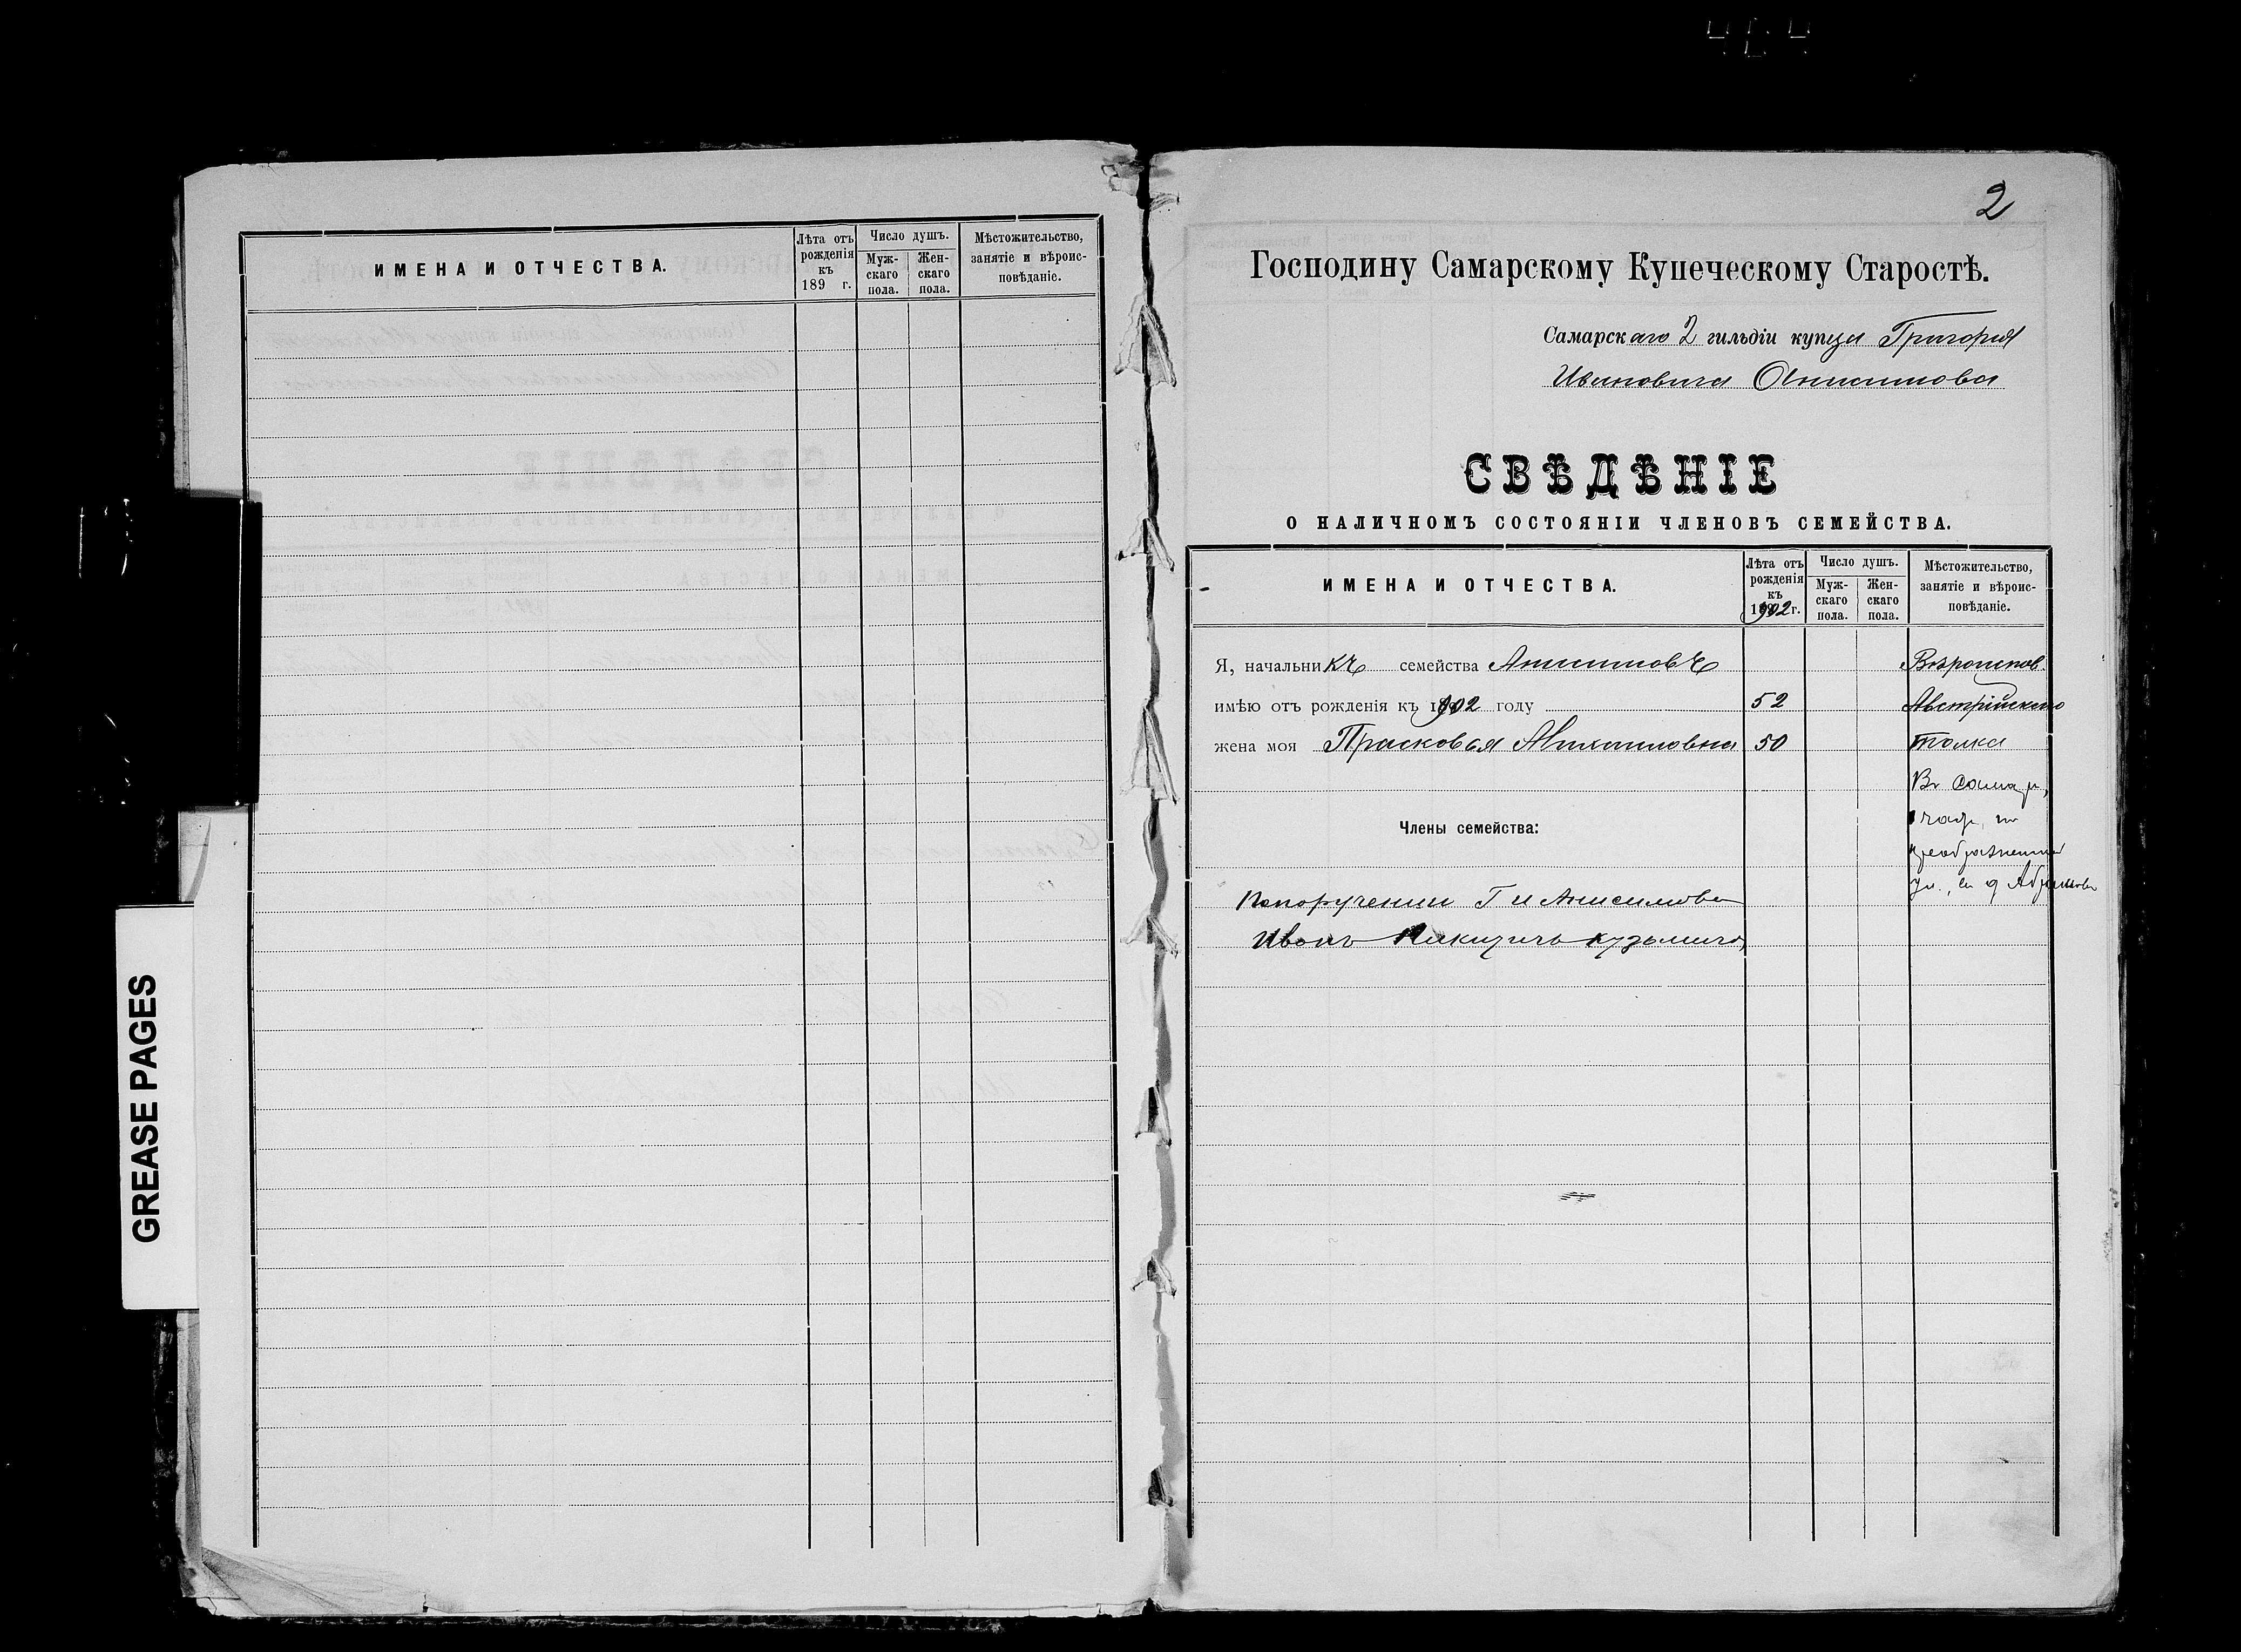 ИМЕНА И ОТЧЕСТВА.
Лѣта отъ рожденія къ 189 г.
Число душъ.
Муж-скаго пола.
Жен-скаго пола.
Мѣстожительство, занятіе и вѣроис-повѣданіе.
GREASE PAGES
2
Господину Самарскому Купеческому Старостѣ.
Самарскаго 2 гильдіи купца Григорія
Ивановича Анисимова
СВѢДѢНІЕ
О НАЛИЧНОМЪ СОСТОЯНІИ ЧЛЕНОВЪ СЕМЕЙСТВА.
ИМЕНА И ОТЧЕСТВА.
Лѣта отъ рожденія къ 1902 г.
Число душъ.
Муж-скаго пола.
Жен-скаго пола.
Мѣстожительство, занятіе и вѣроис-повѣданіе.
Я, начальникъ семейства Анисимовъ
имѣю отъ рожденія къ 1902 году 52 Австрійскаго
жена моя Прасковья Михаиловна 50 толка
Въ Самарѣ,
Члены семейства:
По порученію Г И Анисимова
Иванъ Никитичъ Кузьмичъ